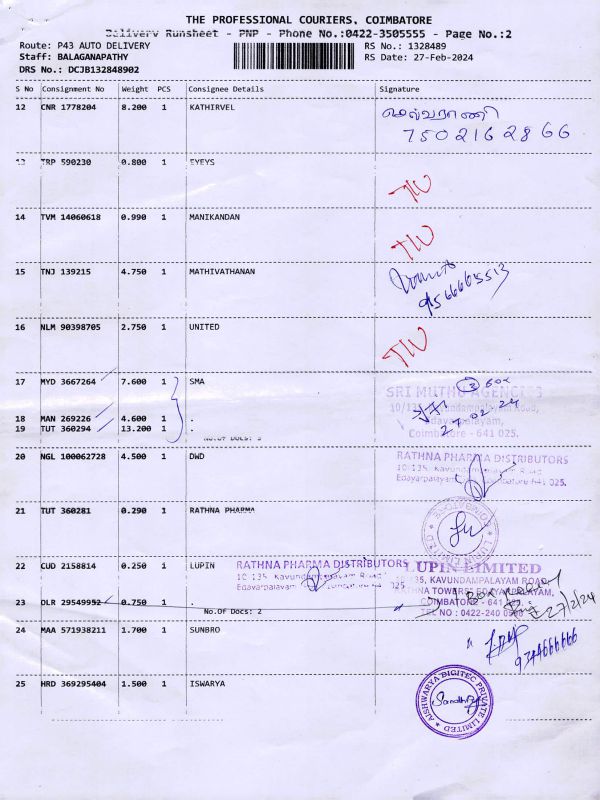 THE PROFESSIONAL COURIERS, COIMBATORE
Delivery Runsheet - PNP - Phone No.:0422-3505555 - Page No.:2
Route: P43 AUTO DELIVERY
RS No.: 1328489
Staff: BALAGANAPATHY
RS Date: 27-Feb-2024
DRS No.: DCJB132848902
S No Consignment No Weight PCS Consignee Details Signature
12 CNR 1778204 8.200 1 KATHIRVEL
செல்வராணி
7502162866
13 TRP 590230 0.800 1 EYEYS
14 TVM 14060618 0.990 1 MANIKANDAN
15 TNJ 139215 4.750 1 MATHIVATHANAN
16 NLM 90398705 2.750 1 UNITED
17 MYD 3667264 7.600 1 SMA
3 box
SRI MUTHU AGENCIES
10/135, Kavundampalayam Road,
Edayarpalayam,
Coimbatore - 641 025.
27.02.24
18 MAN 269226 4.600 1 .
19 TUT 360294 13.200 1 .
No.Of Docs: 3
20 NGL 100062728 4.500 1 DWD
RATHNA PHARMA DISTRIBUTORS
10-135, Kavundampalayam Road
Edayarpalayam, Coimbatore-641 025.
21 TUT 360281 0.290 1 RATHNA PHARMA
LUPIN LIMITED
COIMBATORE
22 CUD 2158814 0.250 1 LUPIN
RATHNA PHARMA DISTRIBUTORS
10-135, Kavundampalayam Road
LUPIN LIMITED
KAVUNDAMPALAYAM ROAD,
RATHNA TOWERS EDAYARPALAYAM,
COIMBATORE - 641
TEL NO : 0422-240
23 DLR 29549952 0.750 1 .
No.Of Docs: 2
27/2/24
24 MAA 571938211 1.700 1 SUNBRO
25 HRD 369295404 1.500 1 ISWARYA
AISHWARYA DIGITEC PRIVATE LIMITED